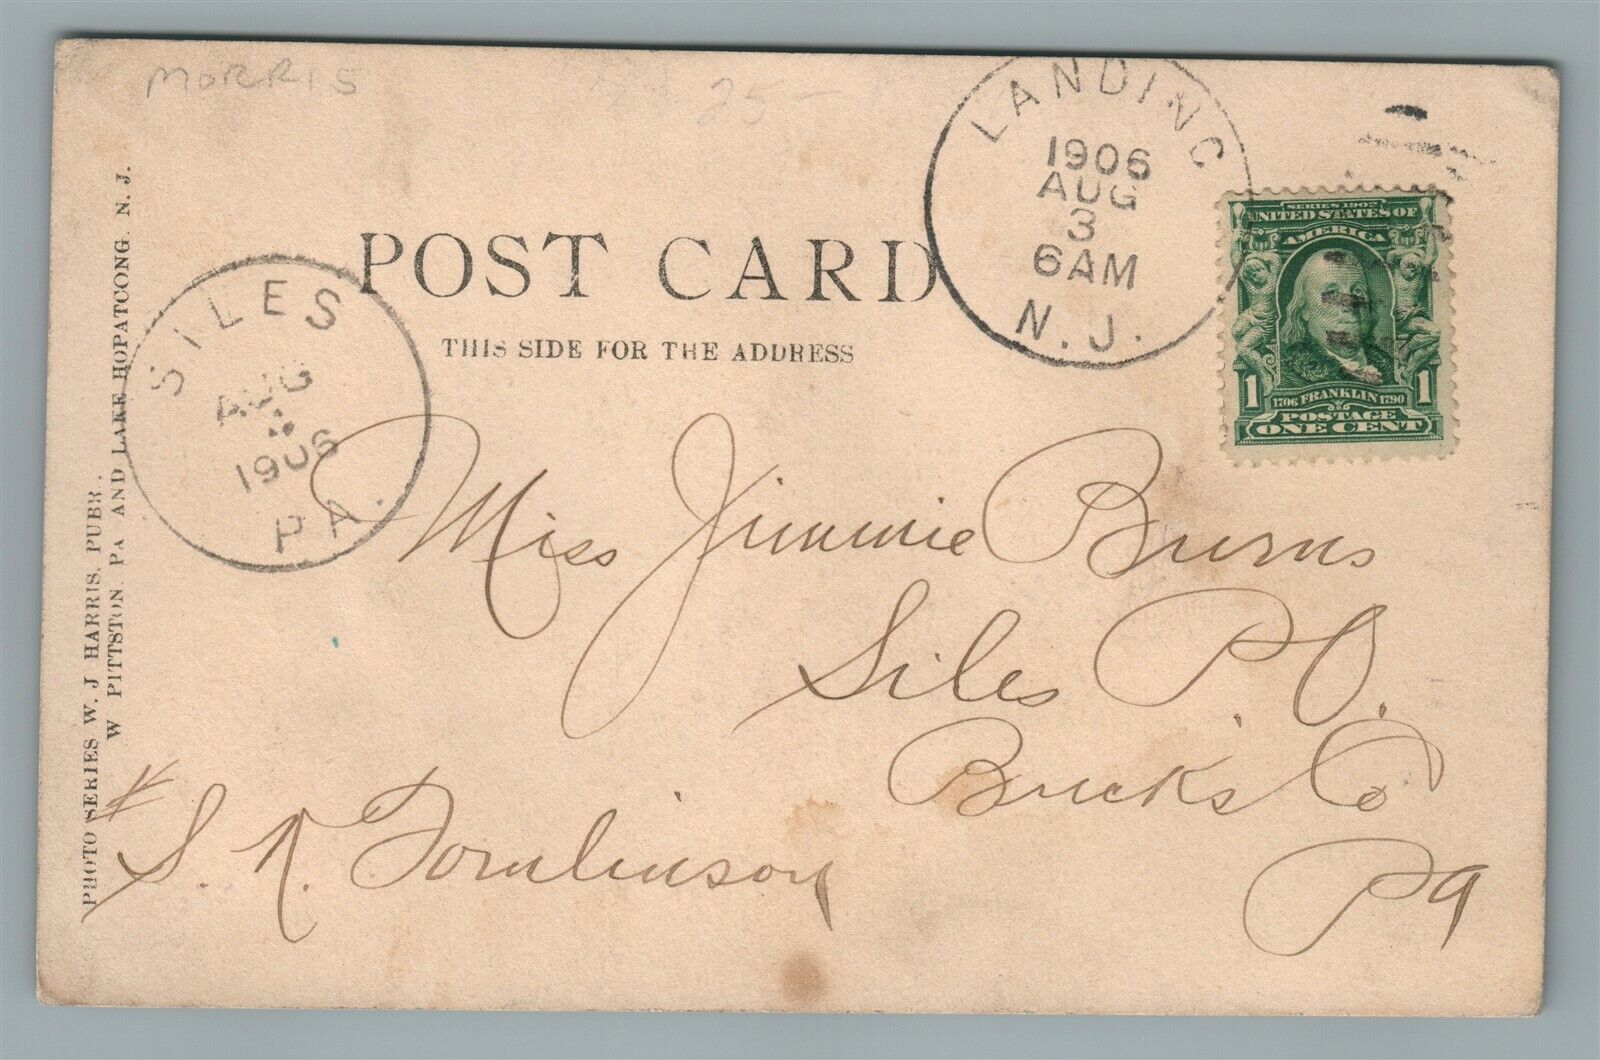 MORRIS
25-
LANDING
1906
AUG
3
6AM
N.J.
SERIES 1902
UNITED STATES OF
AMERICA
1706 FRANKLIN 1790
1 1
POSTAGE
ONE CENT
POST CARD
THIS SIDE FOR THE ADDRESS
SILES
AUG
1906
PA.
PHOTO SERIES W. J HARRIS. PUBR.
W PITTSTON. PA AND LAKE HOPATCONG. N. J.
Miss Jimmie Burns
Siles P.O.
Bucks Co
Pa
S. R. Tomlinson